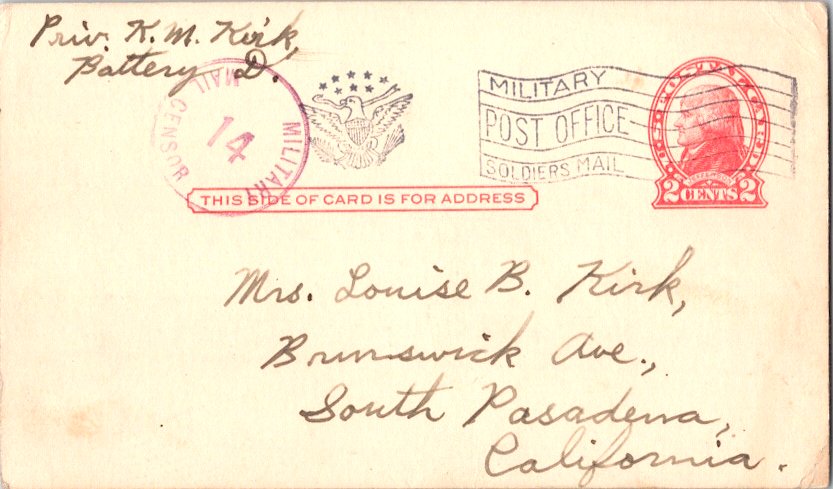 Priv. K. M. Kirk,
Battery D.
MILITARY MAIL CENSOR
14
MILITARY
POST OFFICE
SOLDIERS MAIL
JEFFERSON
2 CENTS 2
THIS SIDE OF CARD IS FOR ADDRESS
Mrs. Louise B. Kirk,
Brunswick Ave.,
South Pasadena,
California.